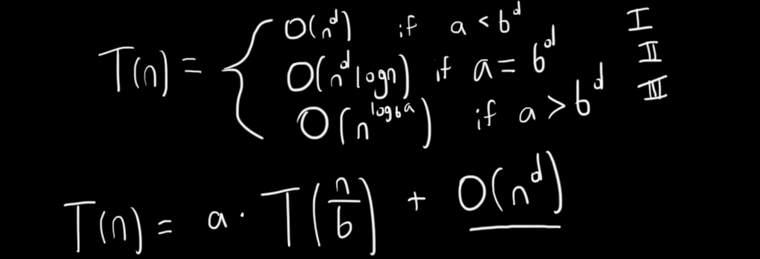 T(n) = { O(n^d) if a < b^d I
O(n^d log n) if a = b^d II
O(n^{log_b a}) if a > b^d III
T(n) = a · T(n/b) + O(n^d)